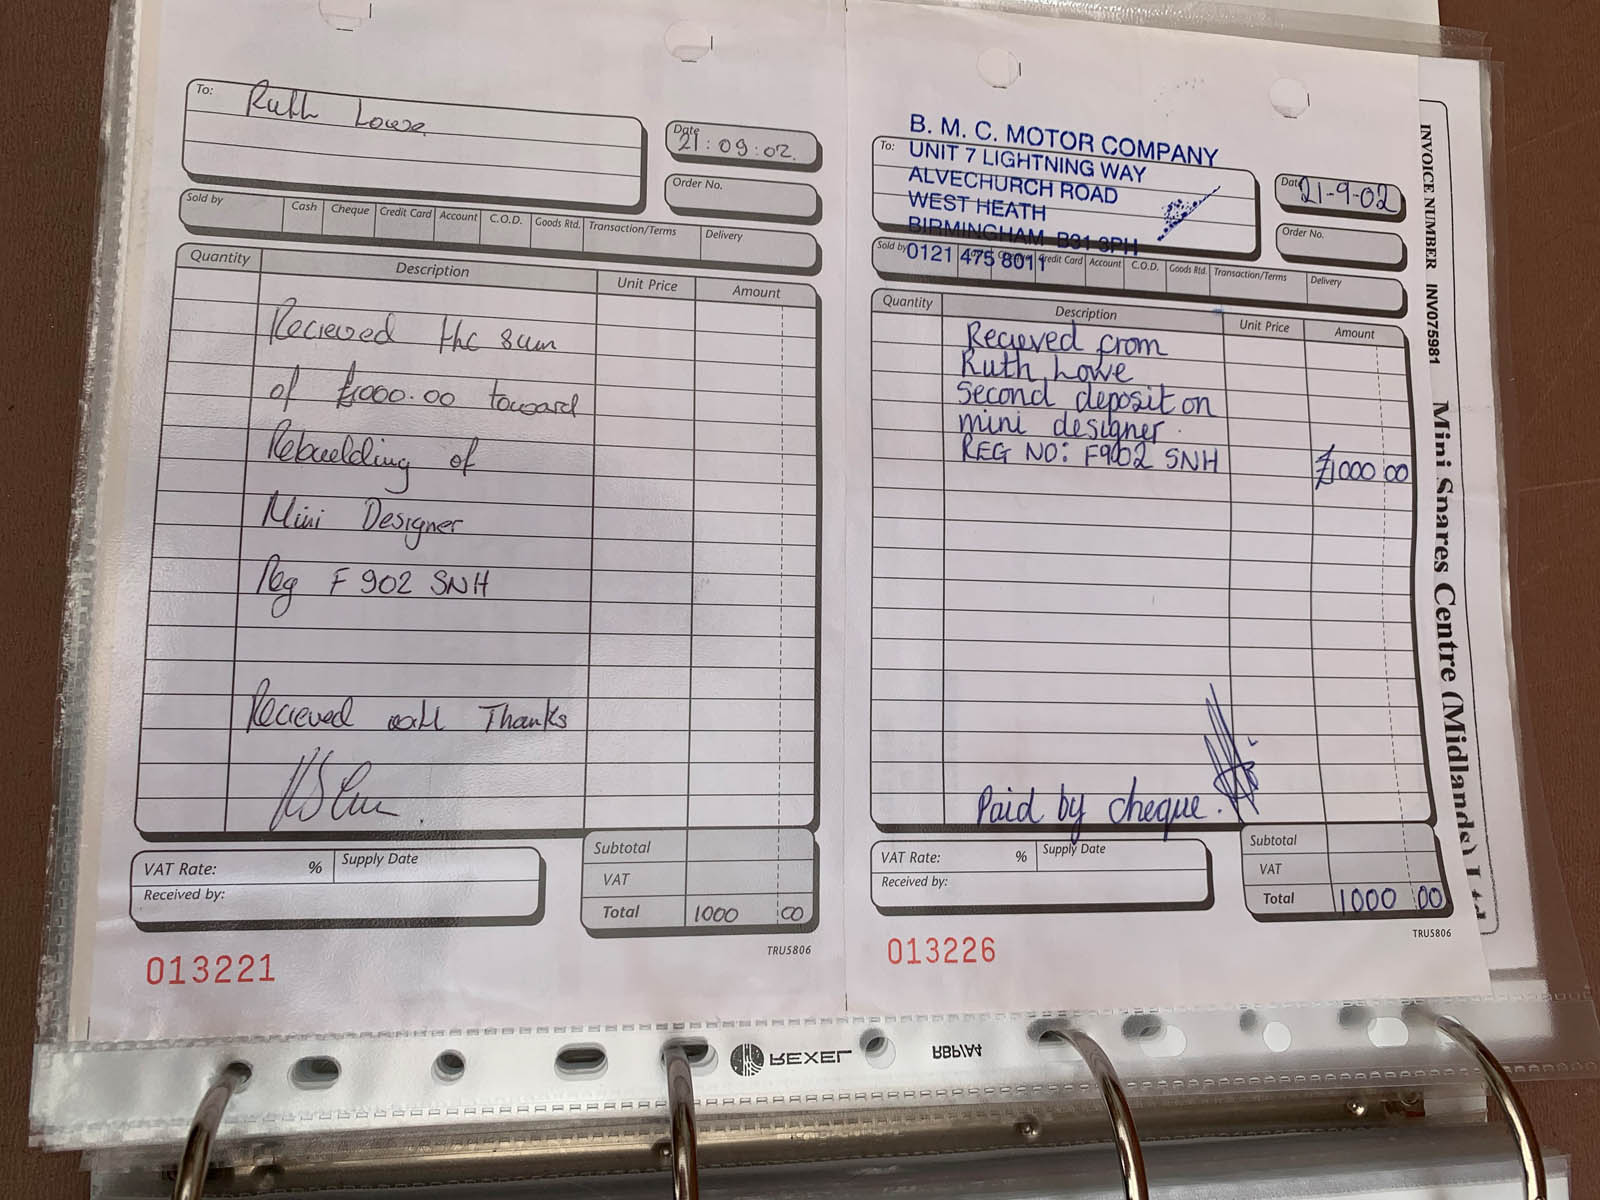 To: Ruth Lowe
Date 21:09:02.
Order No.
Sold by Cash Cheque Credit Card Account C.O.D. Goods Rtd. Transaction/Terms Delivery
Quantity Description Unit Price Amount
Recieved the sum
of £1000.00 toward
Rebuelding of
Mini Designer
Reg F902 SNH
Recieved with Thanks
VAT Rate: % Supply Date
Received by:
Subtotal
VAT
Total 1000 00
TRU5806
013221
B. M. C. MOTOR COMPANY
To: UNIT 7 LIGHTNING WAY
ALVECHURCH ROAD
WEST HEATH
BIRMINGHAM B31 3PH
0121 475 8011
Date 21-9-02
Order No.
Sold by Credit Card Account C.O.D. Goods Rtd. Transaction/Terms Delivery
Quantity Description Unit Price Amount
Recieved from
Ruth Lowe
Second deposit on
mini designer.
REG NO: F902 SNH £1000 00
Paid by cheque.
VAT Rate: % Supply Date
Received by:
Subtotal
VAT
Total 1000 00
TRU5806
013226
INVOICE NUMBER INV075981
Mini Spares Centre (Midlands) Ltd
REXEL
RBP/A4